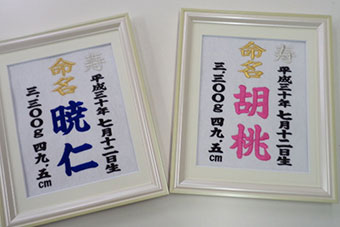 寿
平成三十年 七月十二日生
命名
暁仁
三.三〇〇g 四九.五cm
寿
平成三十年 七月十二日生
命名
胡桃
三.三〇〇g 四九.五cm